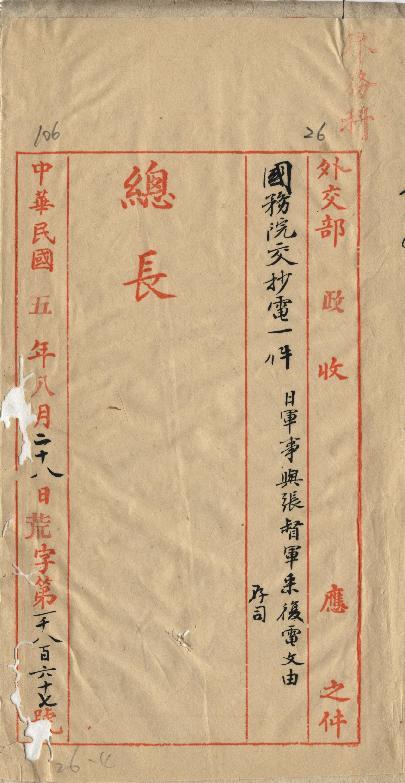 外務科
26
外交部 政 收 應 之件
國務院交抄電一件 日軍事與張督軍來復電文由
存司
總長
106
中華民國五年八月二十八日荒字第一千八百六十七號
26-4